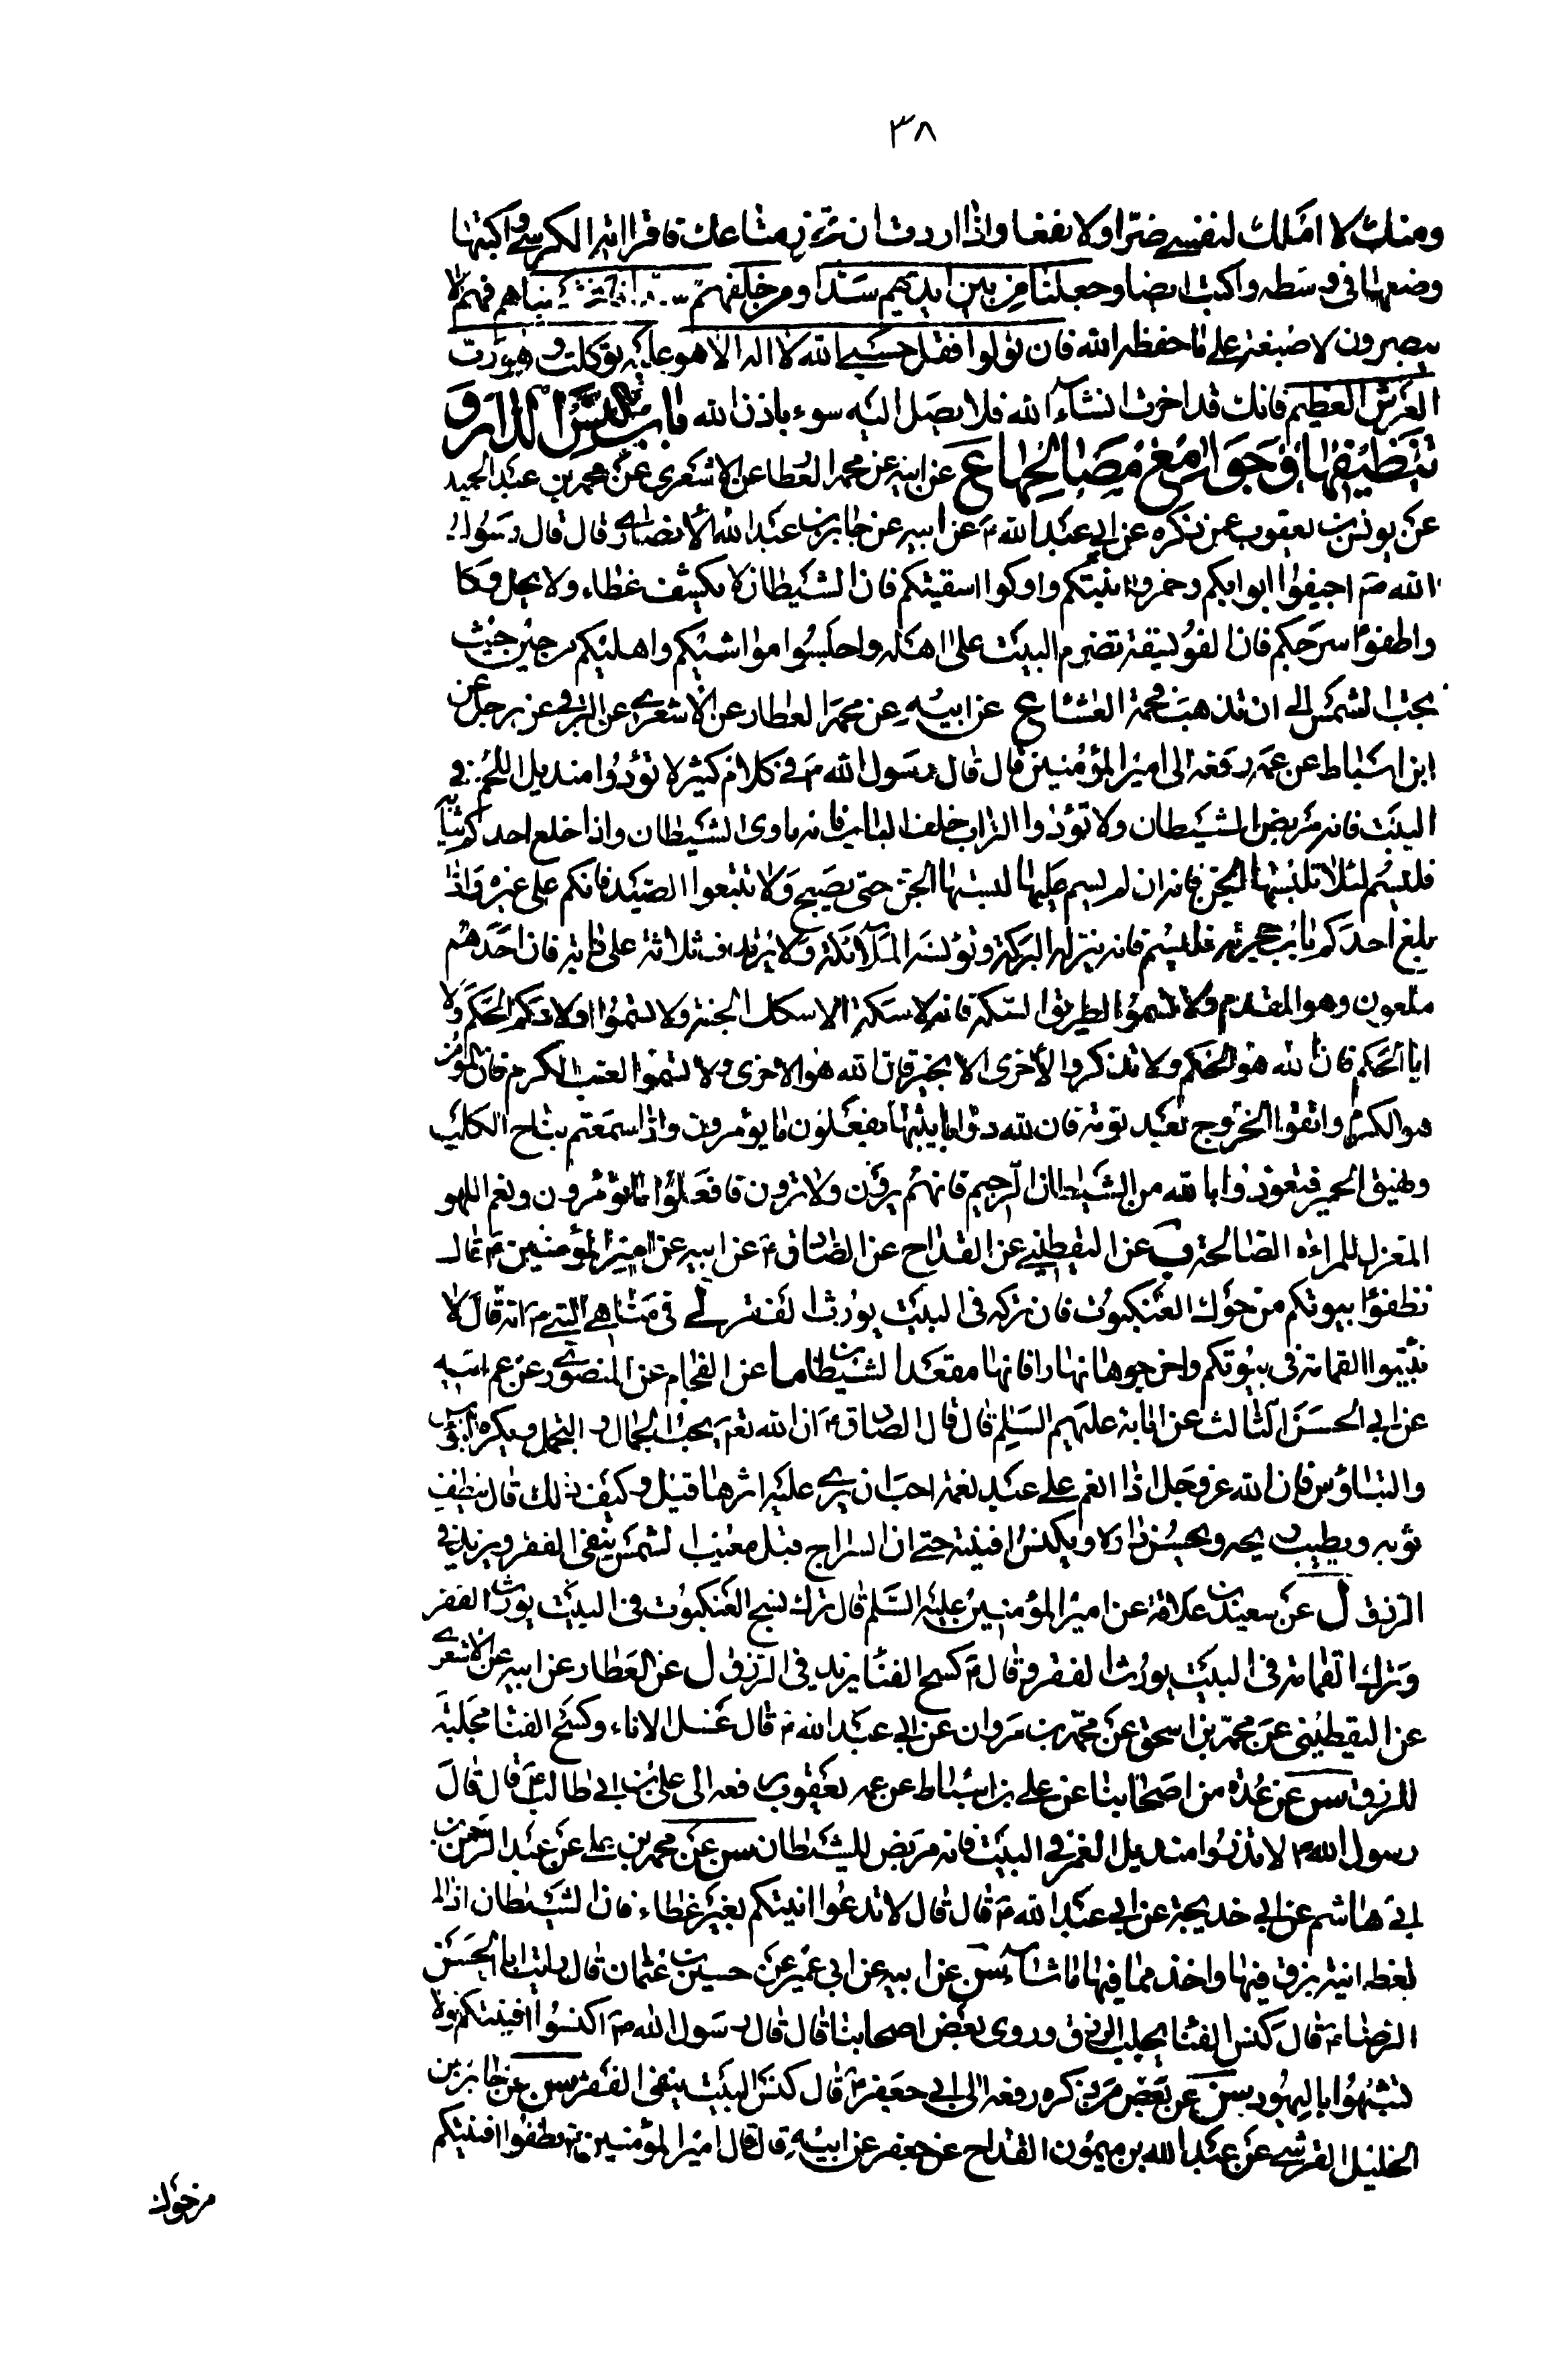 ٣٨
ومنك لا املك لنفسي ضرّا ولا نفعا واذا اردت ان تحرز متاعك فاقرا اية الكرسي واكتبها
وضعها في وسطه واكتب ايضا وجعلنا من بين ايديهم سدا ومن خلفهم سدا فاغشيناهم فهم لا
يبصرون لا ضيعة على ما حفظه الله فان تولوا فقل حسبي الله لا اله الا هو عليه توكلت وهو رب
العرش العظيم فانك قد احرزت انشاء الله فلا يصل اليه سوء باذن الله باب كنس الدار و
تنظيفها وجوامع مصالحها ع عن ابيه عن محمد العطار عن الاشعري عن محمد بن عبد الحميد
عن يونس بن يعقوب عمن ذكره عن ابي عبد الله ع عن ابيه عن جابر بن عبد الله الانصاري قال قال رسول
الله ص اجيفوا ابوابكم وخمروا انيتكم واوكوا اسقيتكم فان الشيطان لا يكشف غطاء ولا يحل وكا
واطفوا سرجكم فان الفويسقة تضرم البيت على اهله واحبسوا مواشيكم واهليكم من حين حيث
تجب الشمس الى ان تذهب فحمة العشا ع عن ابيه عن محمد العطار عن الاشعري عن البرقي عن رجل عن
ابن اسباط عن عمه رفعه الى امير المؤمنين قال قال رسول الله ص في كلام كثير لا تؤووا منديل اللحم في
البيت فانه مربض الشيطان ولا تؤووا التراب خلف الباب فانه ماوى الشيطان واذا خلع احدكم ثيابه
فليسم لئلا تلبسها الجن فانه ان لم يسم عليها لبستها الجن حتى يصبح ولا تتبعوا الصيد فانكم على غرة واذا
بلغ احدكم باب حجرته فليسم فانه ينزله البركة وتؤنسه الملائكة ولا يرتدف ثلاثة على دابة فان احدهم
ملعون وهو المقدم ولا تسموا الطريق السكة فانه لا سكة الا سكك الجنة ولا تسموا اولادكم الحكم ولا
ابا الحكم فان الله هو الحكم ولا تذكروا الاخرى الا بخير فان الله هو الاخرى ولا تسموا العنب الكرم فان المؤمن
هو الكرم واتقوا الخروج بعد نومة فان لله دوابا يبثها يفعلون ما يؤمرون واذا سمعتم نباح الكلب
ونهيق الحمير فتعوذوا بالله من الشيطان الرجيم فانهم يرون ولا ترون فافعلوا ما تؤمرون ونعم اللهو
المغزل للمراءة الصالحة ب عن اليقطيني عن القداح عن الصادق ع عن ابيه عن امير المؤمنين ع قال
نظفوا بيوتكم من حوك العنكبوت فان تركه في البيت يورث الفقر لي في مناهي النبي ص انه قال لا
تبيتوا القمامة في بيوتكم واخرجوها نهارا فانها مقعد الشيطان ما عن الفحام عن المنصوري عن عم ابيه
عن ابي الحسن الثالث عن ابائه عليهم السلام قال قال الصادق ع ان الله تعم يحب الجمال والتجمل ويكره البؤس
والتباؤس فان الله عز وجل اذا انعم على عبد نعمة احب ان يرى عليه اثرها قيل وكيف ذلك قال ينظف
ثوبه ويطيب ريحه ويحسن داره ويكنس افنيته حتى ان السراج قبل مغيب الشمس ينفى الفقر ويزيد في
الرزق ل عن سعيد بن علاقة عن امير المؤمنين عليه السلم قال ترك نسج العنكبوت في البيت يورث الفقر
وترك القمامة في البيت يورث الفقر وقال ع كسح الفنا يزيد في الرزق ل عن العطار عن ابيه عن الاشعري
عن اليقطيني عن محمد بن اسحق عن محمد بن مروان عن ابي عبد الله ع قال غسل الاناء وكسح الفنا مجلبة
للرزق سن عن عدة من اصحابنا عن علي بن اسباط عن عمه يعقوب رفعه الى علي بن ابي طالب ع قال قال
رسول الله ص لا تذروا منديل الغمر في البيت فانه مربض للشيطان سن عن محمد بن علي عن عبد الرحمن بن
ابي هاشم عن ابي خديجة عن ابي عبد الله ع قال قال لا تدعوا انيتكم بغير غطاء فان الشيطان اذا لم
تغط انية بزق فيها واخذ مما فيها ما شاء سن عن ابيه عن ابي عمير عن حسين بن عثمان قال رايت ابا الحسن
الرضا ع قال كنس الفنا يجلب الرزق وروى بعض اصحابنا قال قال رسول الله ص اكنسوا افنيتكم ولا
تشبهوا باليهود سن عن بعض من ذكره رفعه الى ابي جعفر ع قال كنس البيت ينفى الفقر سن عن جابر بن
الخليل القرشي عن عبد الله بن ميمون القداح عن جعفر عن ابيه قال قال امير المؤمنين ع نظفوا افنيتكم
من حوك